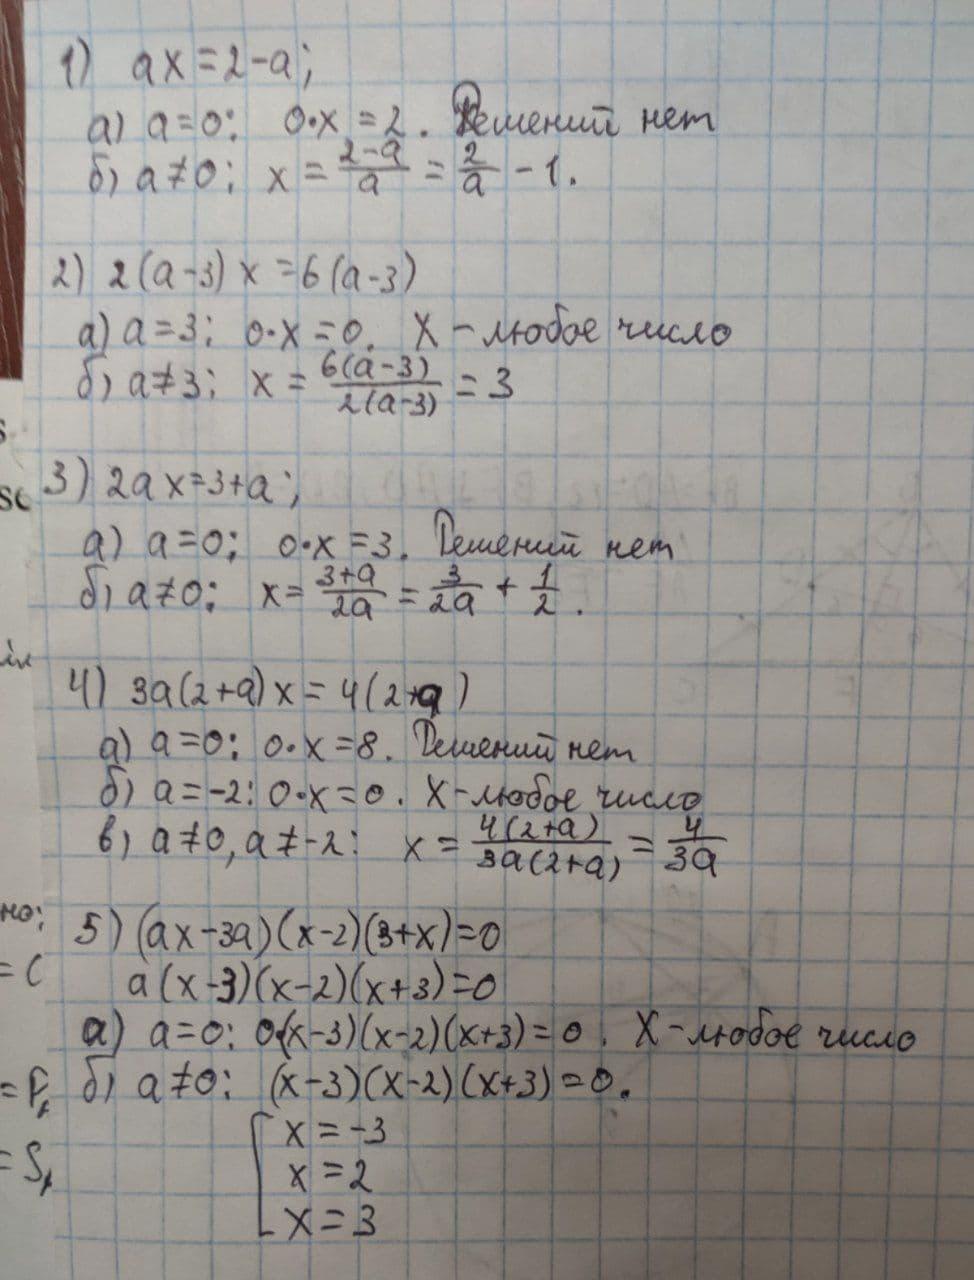 1) ax=2-a;
а) a=0: 0·x=2. Решений нет
б) a≠0: x=\frac{2-a}{a}=\frac{2}{a}-1.
2) 2(a-3)x=6(a-3)
а) a=3: 0·x=0. X-любое число
б) a≠3: x=\frac{6(a-3)}{2(a-3)}=3
3) 2ax=3+a;
а) a=0: 0·x=3. Решений нет
б) a≠0: x=\frac{3+a}{2a}=\frac{3}{2a}+\frac{1}{2}.
4) 3a(2+a)x=4(2+a)
а) a=0: 0·x=8. Решений нет
б) a=-2: 0·x=0. X-любое число
в) a≠0, a≠-2: x=\frac{4(2+a)}{3a(2+a)}=\frac{4}{3a}
но:
5) (ax-3a)(x-2)(3+x)=0
= C
a(x-3)(x-2)(x+3)=0
а) a=0: 0·(x-3)(x-2)(x+3)=0. X-любое число
б) a≠0: (x-3)(x-2)(x+3)=0.
x=-3
x=2
x=3